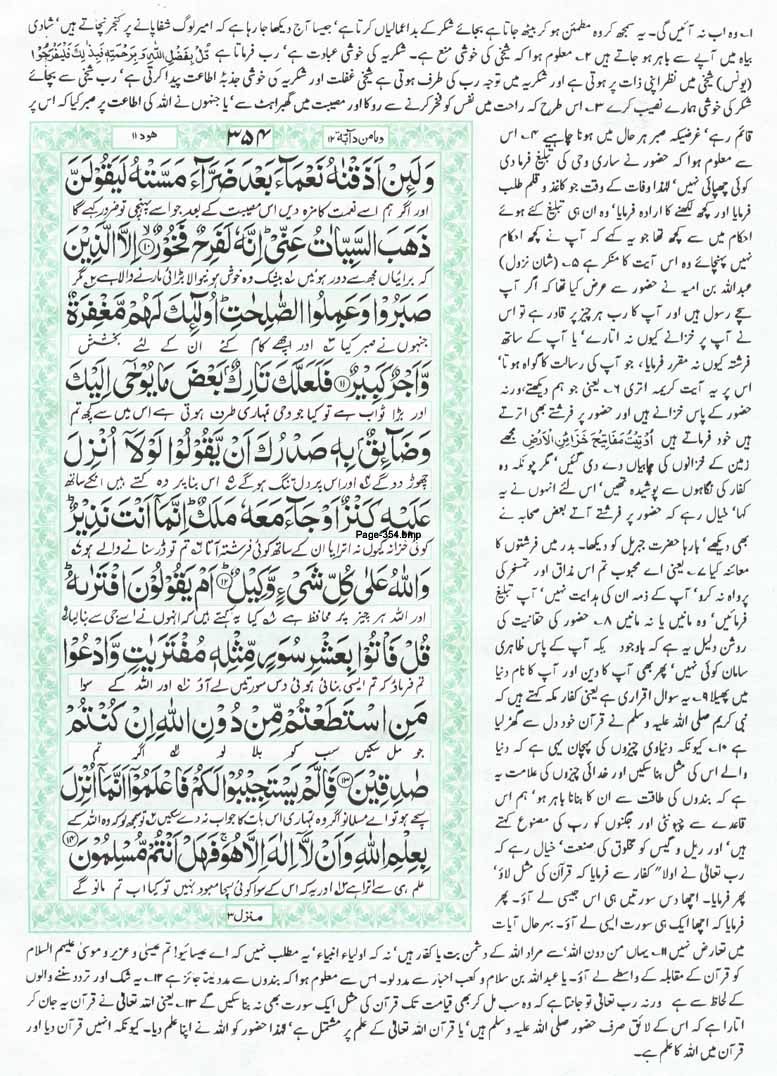 ۱۔ وہ اب نہ آئیں گی۔ یہ سمجھ کر وہ مطمئن ہو کر بیٹھ جاتا ہے بجائے شکر کے بد اعمالیاں کرتا ہے‘ جیسا آج دیکھا جا رہا ہے کہ امیر لوگ شفا پانے پر کنجر نچاتے ہیں‘ شادی
بیاہ میں آپے سے باہر ہو جاتے ہیں ۲۔ معلوم ہوا کہ شیخی کی خوشی منع ہے۔ شکریہ کی خوشی عبادت ہے‘ رب فرماتا ہے قُلْ بِفَضْلِ اللّٰهِ وَ بِرَحْمَتِهٖ فَبِذٰلِكَ فَلْيَفْرَحُوْا
(یونس) شیخی میں نظر اپنی ذات پر ہوتی ہے اور شکریہ میں توجہ رب کی طرف ہوتی ہے شیخی غفلت اور شکریہ کی خوشی جذبۂ اطاعت پیدا کرتی ہے‘ رب شیخی سے بچائے
شکر کی خوشی ہمارے نصیب کرے ۳۔ اس طرح کہ راحت میں نفس کو فخر کرنے سے روکا اور مصیبت میں گھبراہٹ سے‘ یا جنہوں نے اللہ کی اطاعت پر صبر کیا کہ اس پر
ومامن دآبۃ ۱۲
۳۵۴
ھود ۱۱
وَلَئِنْ اَذَقْنٰهُ نَعْمَآءَ بَعْدَ ضَرَّآءَ مَسَّتْهُ لَيَقُوْلَنَّ
اور اگر ہم اسے نعمت کا مزہ دیں اس مصیبت کے بعد جو اسے پہنچی تو ضرور کہے گا
ذَهَبَ السَّيِّاٰتُ عَنِّيْ ؕ اِنَّهٗ لَفَرِحٌ فَخُوْرٌ ۙ‏ ﴿۱۰﴾ اِلَّا الَّذِيْنَ
کہ برائیاں مجھ سے دور ہوئیں ۱؎ بیشک وہ خوش ہونیوالا بڑائی مارنے والا ہے ۲؎ مگر
صَبَرُوْا وَعَمِلُوا الصّٰلِحٰتِ ؕ اُولٰٓئِكَ لَهُمْ مَّغْفِرَةٌ
جنہوں نے صبر کیا ۳؎ اور اچھے کام کئے ان کے لئے بخشش
وَّاَجْرٌ كَبِيْرٌ ﴿۱۱﴾ فَلَعَلَّكَ تَارِكٌۢ بَعْضَ مَا يُوْحٰۤى اِلَيْكَ
اور بڑا ثواب ہے تو کیا جو وحی تمہاری طرف ہوتی ہے اس میں سے کچھ تم
وَضَآئِقٌۢ بِهٖ صَدْرُكَ اَنْ يَّقُوْلُوْا لَوْلَاۤ اُنْزِلَ
چھوڑ دو گے ۴؎ اور اس پر دل تنگ ہو گے ۵؎ اس بنا پر وہ کہتے ہیں انکے ساتھ
عَلَيْهِ كَنْزٌ اَوْ جَآءَ مَعَهٗ مَلَكٌ ؕ اِنَّمَاۤ اَنْتَ نَذِيْرٌ ؕ
Page-354.bmp
کوئی خزانہ کیوں نہ اترا یا ان کے ساتھ کوئی فرشتہ آتا ۶؎ تم تو ڈر سنانے والے ہو ۷؎
وَاللّٰهُ عَلٰى كُلِّ شَيْءٍ وَّكِيْلٌ ؕ ﴿۱۲﴾ اَمْ يَقُوْلُوْنَ افْتَرٰىهُ ؕ
اور اللہ ہر چیز پر محافظ ہے ۸؎ کیا یہ کہتے ہیں کہ انہوں نے اسے جی سے بنا لیا ۹؎
قُلْ فَاْتُوْا بِعَشْرِ سُوَرٍ مِّثْلِهٖ مُفْتَرَيٰتٍ وَّادْعُوْا
تم فرماؤ کہ تم ایسی بنائی ہوئی دس سورتیں لے آؤ ۱۰؎ اور اللہ کے سوا
مَنِ اسْتَطَعْتُمْ مِّنْ دُوْنِ اللّٰهِ اِنْ كُنْتُمْ
جو مل سکیں سب کو بلا لو ۱۱؎ اگر تم
صٰدِقِيْنَ ﴿۱۳﴾ فَاِلَّمْ يَسْتَجِيْبُوْا لَكُمْ فَاعْلَمُوْۤا اَنَّمَاۤ اُنْزِلَ
سچے ہو تو اے مسلمانو اگر وہ تمہاری اس بات کا جواب نہ دے سکیں ۱۲؎ تو سمجھ لو کہ وہ اللہ کے
بِعِلْمِ اللّٰهِ وَاَنْ لَّاۤ اِلٰهَ اِلَّا هُوَ ۚ فَهَلْ اَنْتُمْ مُّسْلِمُوْنَ ﴿۱۴﴾
علم ہی سے اترا ہے ۱۳؎ اور یہ کہ اس کے سوا کوئی سچا معبود نہیں تو کیا اب تم مانو گے
منزل ۳
قائم رہے‘ غرضیکہ صبر ہر حال میں ہونا چاہیے ۴۔ اس
سے معلوم ہوا کہ حضور نے ساری وحی کی تبلیغ فرما دی
کوئی چھپائی نہیں‘ لہٰذا وفات کے وقت جو کاغذ و قلم طلب
فرمایا اور کچھ لکھنے کا ارادہ فرمایا‘ وہ ان ہی تبلیغ کئے ہوئے
احکام میں سے کچھ تھا جو یہ کہے کہ آپ نے کچھ احکام
نہیں پہنچائے وہ اس آیت کا منکر ہے ۵۔ (شان نزول)
عبداللہ بن امیہ نے حضور سے عرض کیا تھا کہ اگر آپ
سچے رسول ہیں اور آپ کا رب ہر چیز پر قادر ہے تو اس
نے آپ پر خزانے کیوں نہ اتارے‘ یا آپ کے ساتھ
فرشتہ کیوں نہ مقرر فرمایا، جو آپ کی رسالت کا گواہ ہوتا‘
اس پر یہ آیت کریمہ اتری ۶۔ یعنی جو ہم دیکھتے، ورنہ
حضور کے پاس خزانے ہیں اور حضور پر فرشتے بھی اترتے
ہیں خود فرماتے ہیں اُوْتِيْتُ مَفَاتِيْحَ خَزَائِنِ الْاَرْضِ مجھے
زمین کے خزانوں کی چابیاں دے دی گئیں‘ مگر چونکہ وہ
کفار کی نگاہوں سے پوشیدہ تھیں‘ اس لئے انہوں نے یہ
کہا‘ خیال رہے کہ حضور پر فرشتے آتے بعض صحابہ نے
بھی دیکھے‘ بارہا حضرت جبریل کو دیکھا۔ بدر میں فرشتوں کا
معائنہ کیا ۷۔ یعنی اے محبوب تم اس مذاق اور تمسخر کی
پرواہ نہ کرو‘ آپ کے ذمہ ان کی ہدایت نہیں‘ آپ تبلیغ
فرمائیں‘ وہ مانیں یا نہ مانیں ۸۔ حضور کی حقانیت کی
روشن دلیل یہ ہے کہ باوجود یکہ آپ کے پاس ظاہری
سامان کوئی نہیں‘ پھر بھی آپ کا دین اور آپ کا نام دنیا
میں پھیلا ۹۔ یہ سوال اقراری ہے یعنی کفار مکہ کہتے ہیں کہ
نبی کریم صلی اللہ علیہ وسلم نے قرآن خود دل سے گھڑ لیا
ہے ۱۰۔ کیونکہ دنیاوی چیزوں کی پہچان یہی ہے کہ دنیا
والے اس کی مثل بنا سکیں اور خدائی چیزوں کی علامت یہ
ہے کہ بندوں کی طاقت سے ان کا بنانا باہر ہو‘ ہم اس
قاعدے سے چیونٹی اور جگنوں کو رب کی مصنوع کہتے
ہیں‘ اور ریل و گیس کو مخلوق کی صنعت‘ خیال رہے کہ
رب تعالیٰ نے اولاً کفار سے فرمایا کہ قرآن کی مثل لاؤ‘
پھر فرمایا۔ اچھا دس سورتیں ہی اس جیسی لے آؤ۔ پھر
فرمایا کہ اچھا ایک ہی سورت ایسی لے آؤ۔ بہرحال آیات
میں تعارض نہیں ۱۱۔ یہاں من دون اللہ سے مراد اللہ کے دشمن بت یا کفار ہیں‘ نہ کہ اولیاء انبیاء‘ یہ مطلب نہیں کہ اے عیسائیو! تم عیسیٰ و عزیر و موسیٰ علیہم السلام
کو قرآن کے مقابلہ کے واسطے لے آؤ۔ یا عبداللہ بن سلام و کعب احبار سے مدد لو۔ اس سے معلوم ہوا کہ بندوں سے مدد لینا جائز ہے ۱۲۔ یہ شک اور تردد سننے والوں
کے لحاظ سے ہے ورنہ رب تعالیٰ تو جانتا ہے کہ وہ سب مل کر بھی قیامت تک قرآن کی مثل ایک سورت بھی نہ بنا سکیں گے ۱۳۔ یعنی اللہ تعالیٰ نے قرآن یہ جان کر
اتارا ہے کہ اس کے لائق صرف حضور صلی اللہ علیہ وسلم ہیں‘ یا قرآن اللہ تعالیٰ کے علم پر مشتمل ہے‘ لہٰذا حضور کو اللہ نے اپنا علم دیا۔ کیونکہ انہیں قرآن دیا اور
قرآن میں اللہ کا علم ہے۔